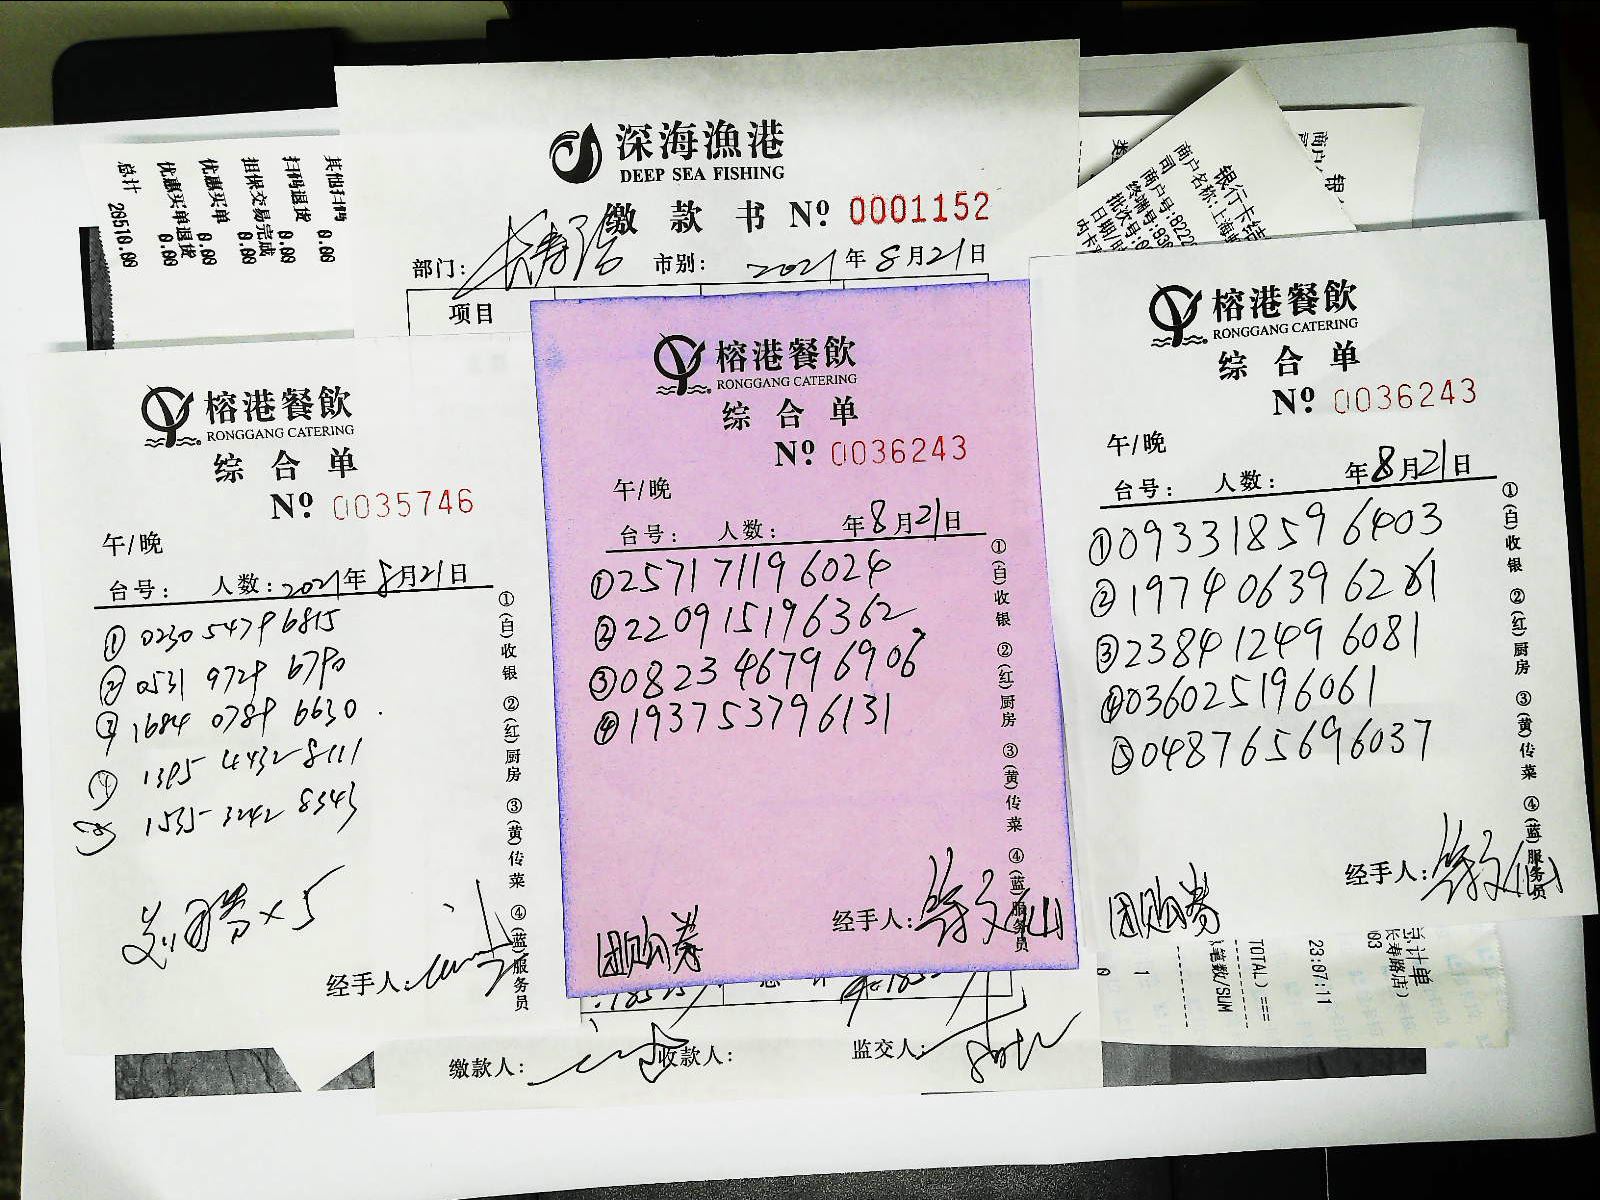 深海漁港
DEEP SEA FISHING
缴款书 Nº 0001152
部门: 长寿路 市别: 2021年8月21日
项目
其他扫码 0.00
扫码退货 0.00
担保交易完成 0.00
优惠买单 0.00
优惠买单退货 0.00
总计 28510.00
银行卡结
商户名称:上海
商户号:8222
终端号:936
批次号:
日期/
内卡
榕港餐飲
RONGGANG CATERING
综合单
Nº 0035746
午/晚
台号: 人数: 2021年8月21日
① 0230 5479 6815
② 0531 9729 6790
③ 1684 0789 6630
④ 1395 4432 8111
⑤ 1535 3242 8343
×5
经手人:
①(白)收银 ②(红)厨房 ③(黄)传菜 ④(蓝)服务员
榕港餐飲
RONGGANG CATERING
综合单
Nº 0036243
午/晚
台号: 人数: 年8月21日
①0257171196024
②220915196362
③082346796906
④193753796131
团购券
经手人:
①(白)收银 ②(红)厨房 ③(黄)传菜 ④(蓝)服务员
榕港餐飲
RONGGANG CATERING
综合单
Nº 0036243
午/晚
台号: 人数: 年8月21日
①093318596403
②197406396261
③238412496081
④036025196061
⑤048765696037
团购券
经手人:
①(白)收银 ②(红)厨房 ③(黄)传菜 ④(蓝)服务员
缴款人: 收款人: 监交人:
总计单
长寿路店)
23:07:11
TOTAL) ===
(笔数/SUM